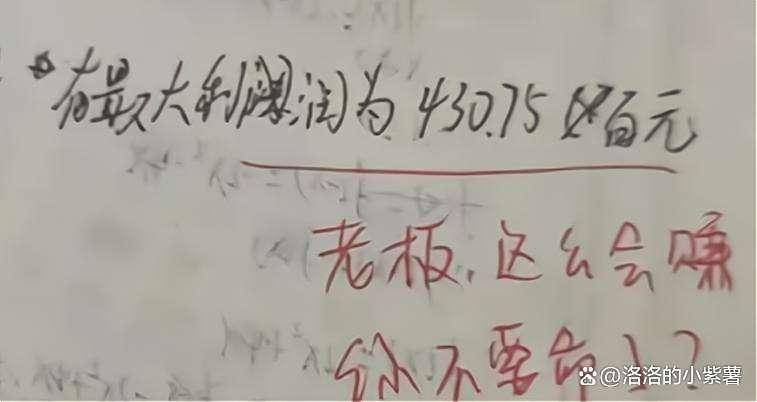 有最大利润为 430.75 百元
老板,这么会赚
你不要命了?
@洛洛的小紫薯